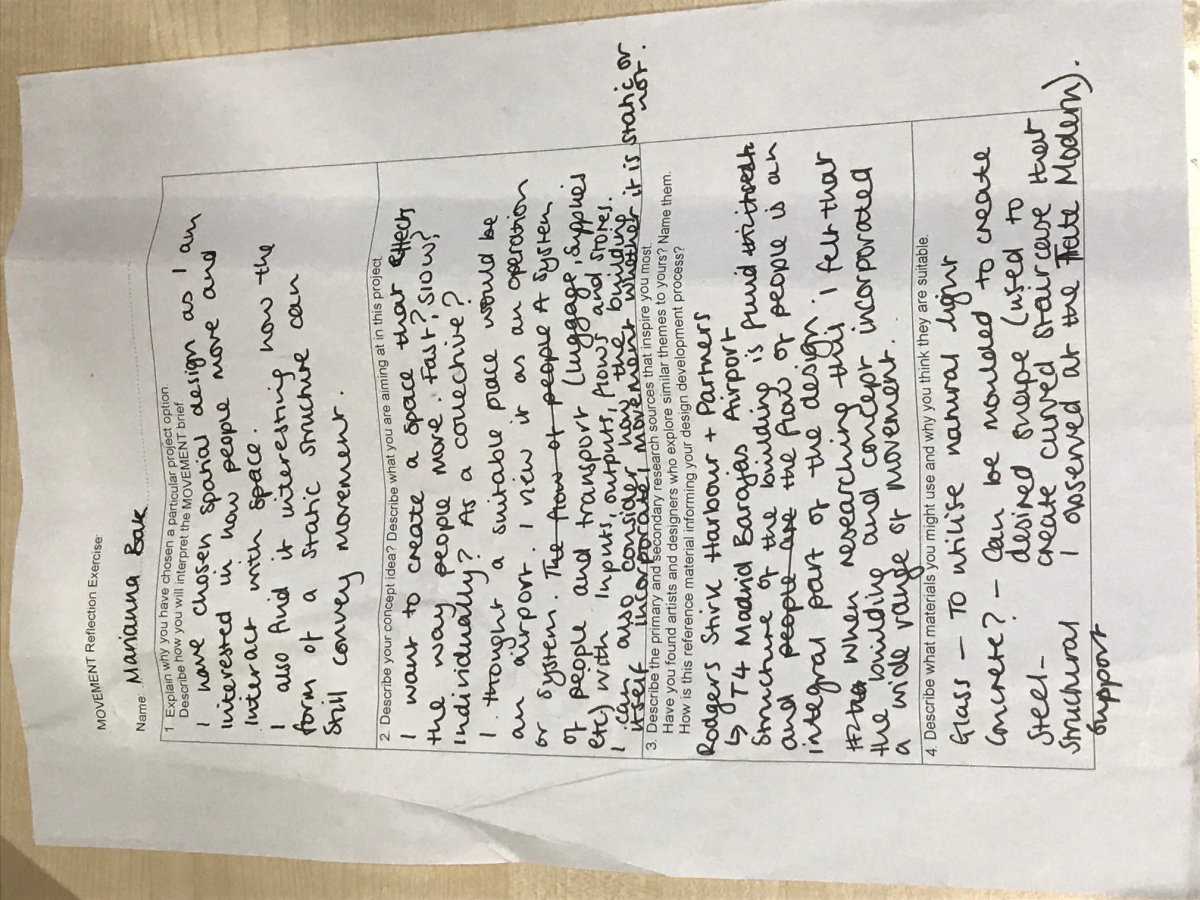 MOVEMENT Reflection Exercise:
Name: Marianna Bak
1. Explain why you have chosen a particular project option
Describe how you will interpret the MOVEMENT brief.
I have chosen spatial design as I am
interested in how people move and
interact with space.
I also find it interesting how the
form of a static structure can
still convey movement.
2. Describe your concept idea? Describe what you are aiming at in this project
I want to create a space that effects
the way people move. Fast? Slow?
Individually? As a collective?
I thought a suitable place would be
an airport. I view it as an operation
or system. The flow of people A system
of people and transport (luggage, supplies
etc) with inputs, outputs, flows and stores.
I can also consider how the building
itself incorporates movement whether it is static or
not.
3. Describe the primary and secondary research sources that inspire you most.
Have you found artists and designers who explore similar themes to yours? Name them.
How is this reference material informing your design development process?
Rodgers Stirk Harbour + Partners
↳ T4 Madrid Barajas Airport
Structure of the building is fluid
and people are the flow of people is an
integral part of the design. I felt that
when researching this
the building and concept incorporated
a wide range of movement.
4. Describe what materials you might use and why you think they are suitable.
Glass - To utilise natural light
Concrete? - Can be moulded to create
desired shape (used to
Steel - create curved staircase that
Structural I observed at the Tate Modern).
support